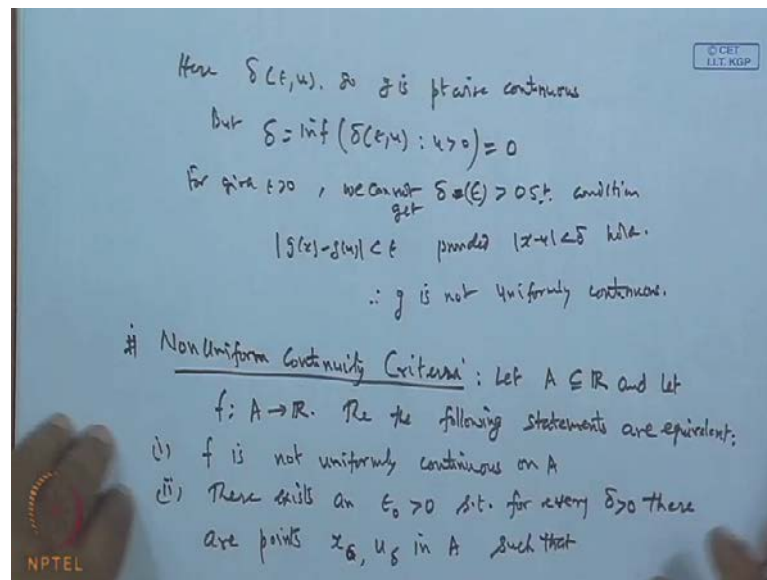 Here δ(ε,u). So g is ptwise continuous
© CET
I.I.T. KGP
But δ = inf (δ(ε,u) : u>0) = 0
For given ε>0 , we cannot get δ=(ε) > 0 s.t. condition
|g(x)-g(u)| < ε provided |x-u|<δ hold.
∴ g is not uniformly continuous.
# Nonuniform Continuity Criteria : Let A ⊆ ℝ and let
f: A→ℝ. The the following statements are equivalent:
(i) f is not uniformly continuous on A
(ii) There exists an ε₀ >0 s.t. for every δ>0 there
are points x_δ, u_δ in A such that
NPTEL